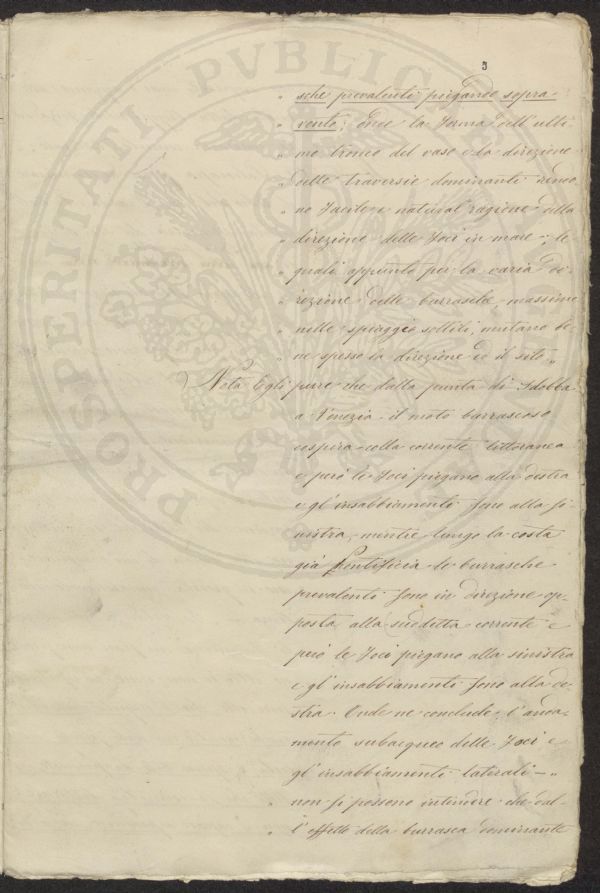 3
„ sche prevalenti piegando sopra
„ vento; Onde la forma dell' ulti-
„ mo tronco del vaso e la direzione
„ delle traversie dominanti rendo
„ no facile e natural ragione della
„ direzione delle foci in mare -; le
„ quali appunto per la varia di-
„ rezione delle burrasche, massime
„ nelle spiaggie sottili, mutano be
„ ne spesso la direzione ed il sito „
Nota Egli pure che dalla punta di Sdobba
a Venezia il moto burrascoso
cospira colla corrente littoranea
e però le foci piegano alla destra
e gl' insabbiamenti sono alla si-
nistra, mentre lungo la costa
già Pontificia le burrasche
prevalenti sono in direzione op-
posta alla sudetta corrente e
però le foci piegano alla sinistra
e gl' insabbiamenti sono alla de-
stra. Onde ne conclude: l' anda-
mento subacqueo delle foci e
gl' insabbiamenti laterali - „
„ non si possono intendere che dal-
„ l' effetto della burrasca dominante
PROSPERITATI PVBLICAE